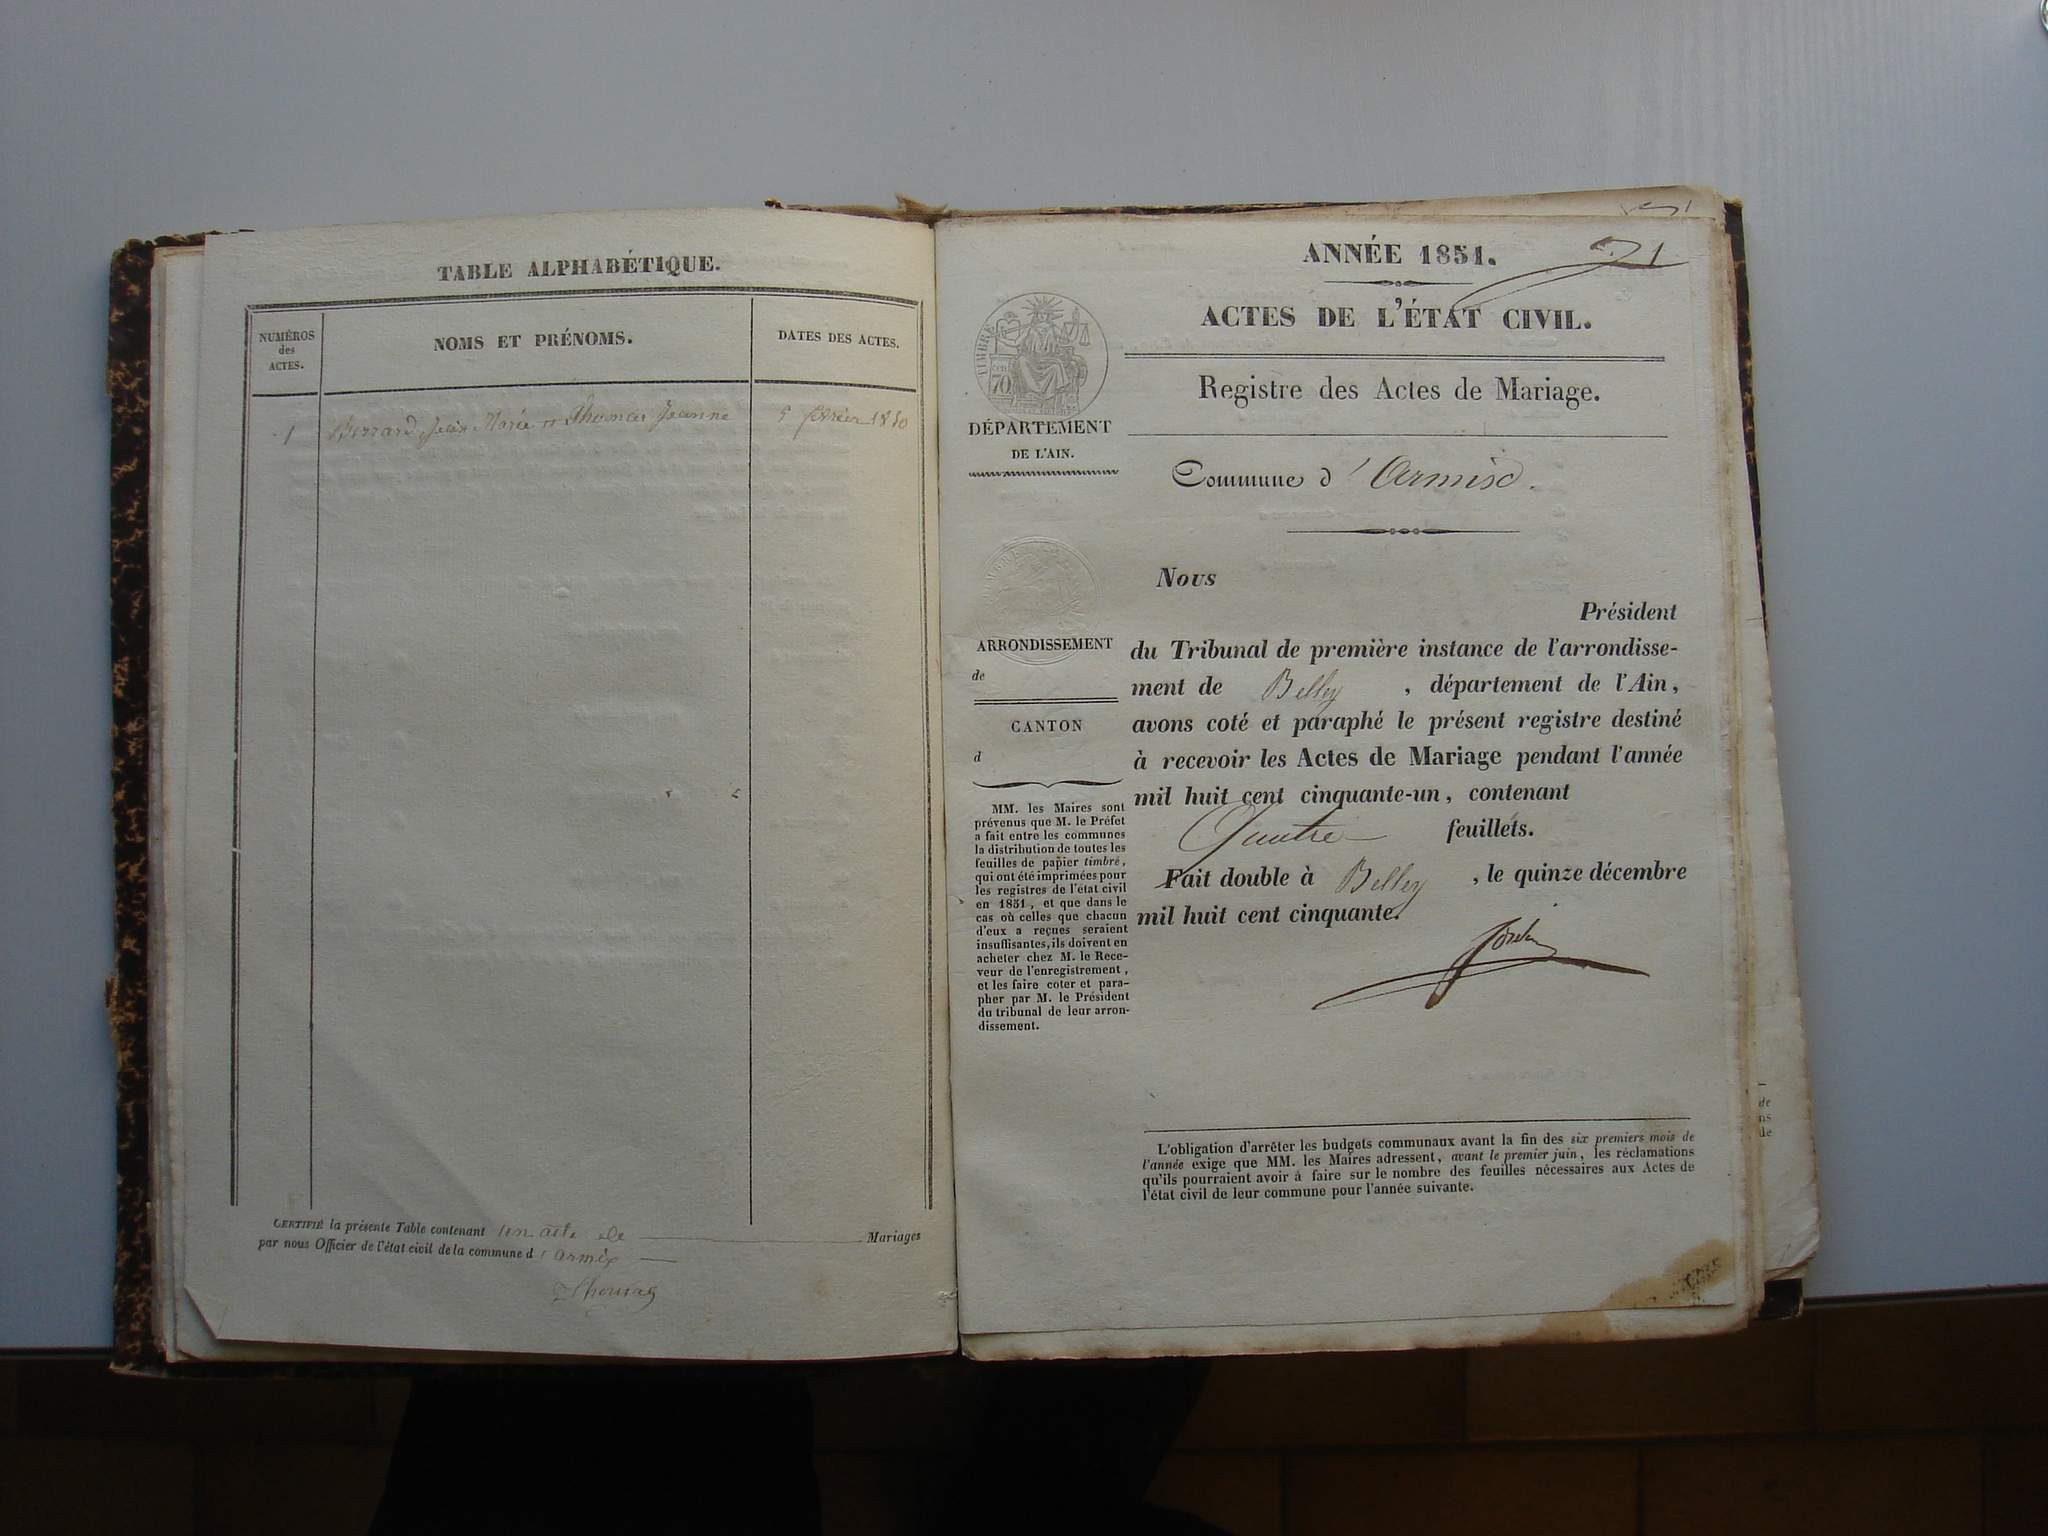 TABLE ALPHABÉTIQUE.
NUMÉROS
des
ACTES.
NOMS ET PRÉNOMS.
DATES DES ACTES.
1 Berrard, Jean Marie et Thomas Jeanne 5 février 1850
CERTIFIÉ la présente Table contenant un acte de Mariages
par nous Officier de l'état civil de la commune d'Armix
Thomas
1
ANNÉE 1851.
ACTES DE L'ÉTAT CIVIL.
Registre des Actes de Mariage.
TIMBRE
70
DÉPARTEMENT
DE L'AIN.
Commune d'Armix.
Nous
Président
du Tribunal de première instance de l'arrondisse-
ment de Belley, département de l'Ain,
avons coté et paraphé le présent registre destiné
à recevoir les Actes de Mariage pendant l'année
mil huit cent cinquante-un, contenant
Quatre feuillets.
Fait double à Belley, le quinze décembre
mil huit cent cinquante.
ARRONDISSEMENT
de
CANTON
d
MM. les Maires sont
prévenus que M. le Préfet
a fait entre les communes
la distribution de toutes les
feuilles de papier timbré,
qui ont été imprimées pour
les registres de l'état civil
en 1851, et que dans le
cas où celles que chacun
d'eux a reçues seraient
insuffisantes, ils doivent en
acheter chez M. le Rece-
veur de l'enregistrement,
et les faire coter et para-
pher par M. le Président
du tribunal de leur arron-
dissement.
L'obligation d'arrêter les budgets communaux avant la fin des six premiers mois de
l'année exige que MM. les Maires adressent, avant le premier juin, les réclamations
qu'ils pourraient avoir à faire sur le nombre des feuilles nécessaires aux Actes de
l'état civil de leur commune pour l'année suivante.